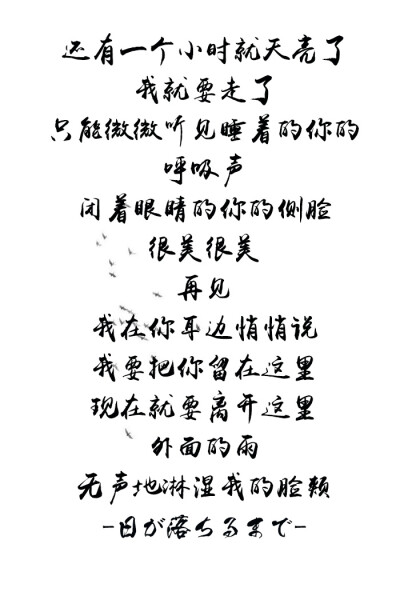 还有一个小时就天亮了
我就要走了
只能微微听见睡着的你的
呼吸声
闭着眼睛的你的侧脸
很美很美
再见
我在你耳边悄悄说
我要把你留在这里
现在就要离开这里
外面的雨
无声地淋湿我的脸颊
-日が落ちるまで-